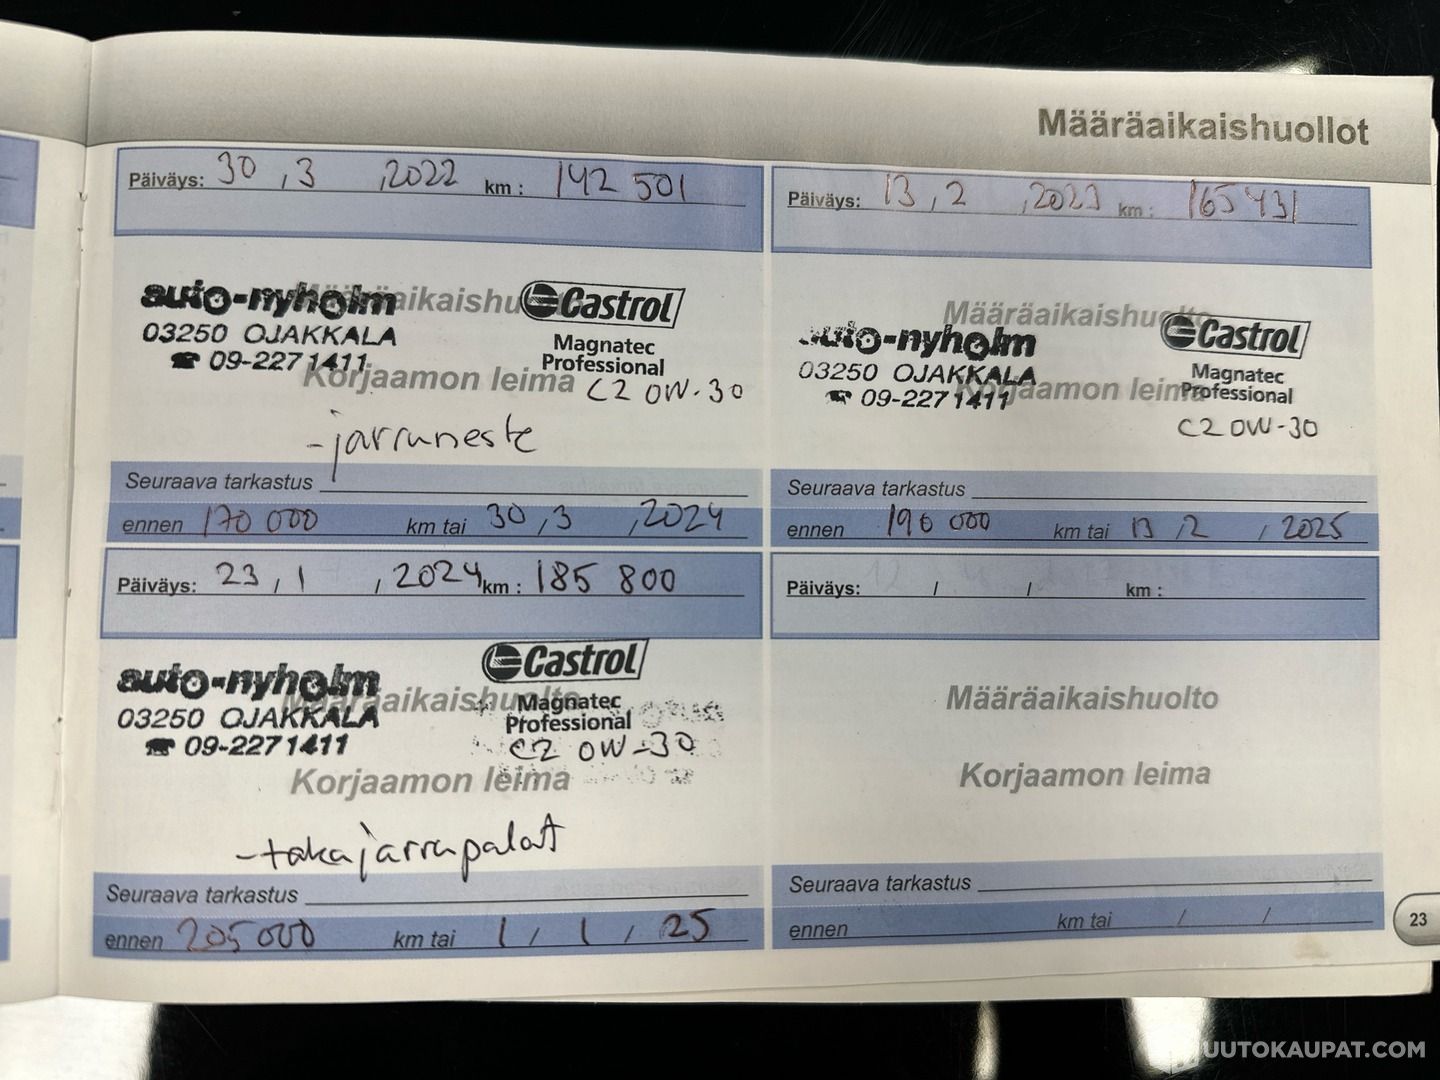 Määräaikaishuollot
Päiväys: 30 , 3 , 2022 km : 142 501
auto-nyholm
03250 OJAKKALA
☎ 09-2271411
Castrol
Magnatec
Professional
C2 0W-30
Määräaikaishu
Korjaamon leima
-jarruneste
Seuraava tarkastus
ennen 170 000 km tai 30 , 3 , 2024
Päiväys: 13 , 2 , 2023 km : 165431
Määräaikaishuolto
auto-nyholm
03250 OJAKKALA
☎ 09-2271411
Castrol
Magnatec
Professional
C2 0W-30
Korjaamon leima
Seuraava tarkastus
ennen 190 000 km tai 13 , 2 , 2025
Päiväys: 23 , 1 , 2024 km : 185 800
auto-nyholm
03250 OJAKKALA
☎ 09-2271411
Castrol
Magnatec
Professional
C2 0W-30
Määräaikaishuolto
Korjaamon leima
-takajarrupalat
Seuraava tarkastus
ennen 205 000 km tai 1 / 1 / 25
Päiväys: / / km :
Määräaikaishuolto
Korjaamon leima
Seuraava tarkastus
ennen km tai / /
23
UUTOKAUPAT.COM